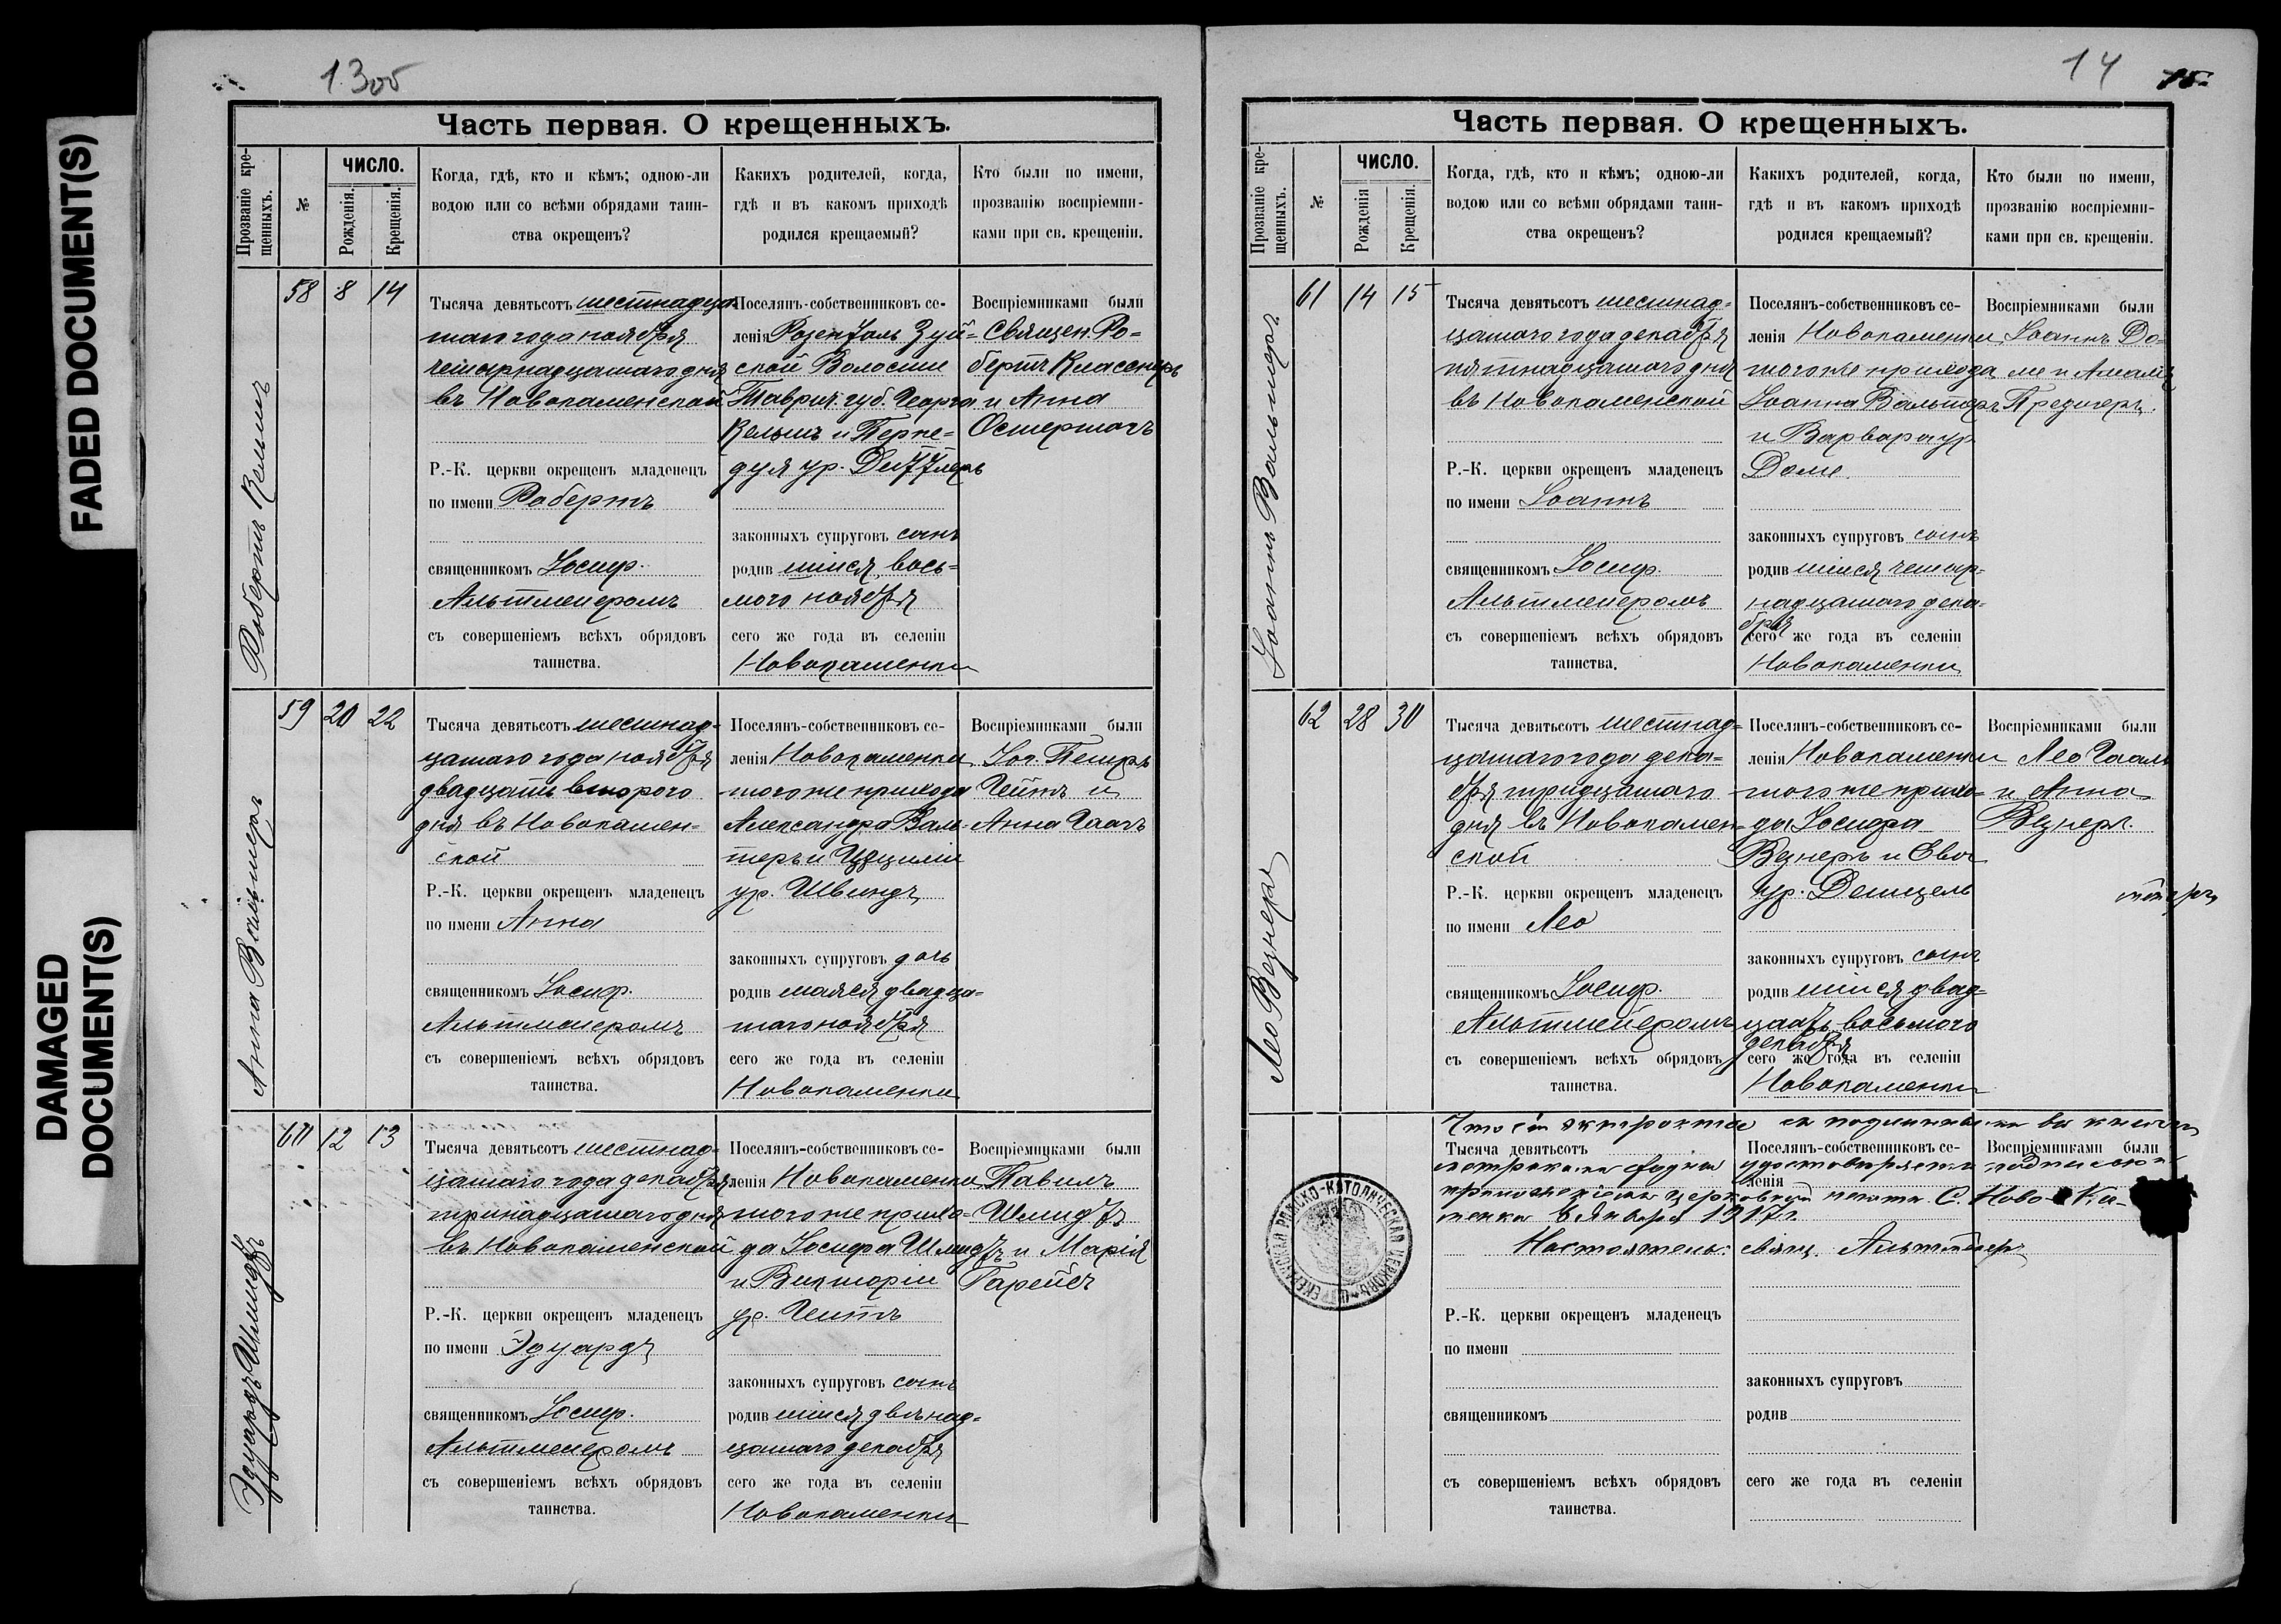 FADED DOCUMENT(S)
DAMAGED
DOCUMENT(S)
13об
Часть первая. О крещенныхъ.
Прозваніе кре-
щенныхъ.
№
ЧИСЛО.
Рожденія.
Крещенія.
Когда, гдѣ, кто и кѣмъ; одною-ли
водою или со всѣми обрядами таин-
ства окрещенъ?
Какихъ родителей, когда,
гдѣ и въ какомъ приходѣ
родился крещаемый?
Кто были по имени,
прозванію воспріемни-
ками при св. крещеніи.
Робертъ Кельшъ
58 8 14
Тысяча девятьсотъ шестнадца-
таго года ноября
четырнадцатаго дня
въ Новокаменской
Р.-К. церкви окрещенъ младенецъ
по имени Робертъ
священникомъ Іосиф.
Альтмейеромъ
съ совершеніемъ всѣхъ обрядовъ
таинства.
Поселянъ-собственниковъ се-
ленія Розенталь Зуй-
ской Волости
Таврич. губ. Георга
Кельшъ и Перпе-
дуя ур.
законныхъ супруговъ сынъ
родившійся вось-
мого ноября
сего же года въ селеніи
Новокаменки
Воспріемниками были
Священ. Ро-
бертъ
и Анна
Остермагъ
Анна Вальтеръ
59 20 22
Тысяча девятьсотъ шестнад-
цатаго года ноября
двадцать второго
дня въ Новокамен-
ской
Р.-К. церкви окрещенъ младенецъ
по имени Анна
священникомъ Іосиф.
Альтмейеромъ
съ совершеніемъ всѣхъ обрядовъ
таинства.
Поселянъ-собственниковъ се-
ленія Новокаменки
того же прихода
Александра Валь-
теръ и Цециліи
ур. Швиндъ
законныхъ супруговъ дочь
родившаяся двадца-
таго ноября
сего же года въ селеніи
Новокаменки
Воспріемниками были
Іос. Петръ
Гейтъ и
Анна Гаагъ
Эдуардъ Шмидтъ
60 12 13
Тысяча девятьсотъ шестнад-
цатаго года декабря
тринадцатаго дня
въ Новокаменской
Р.-К. церкви окрещенъ младенецъ
по имени Эдуардъ
священникомъ Іосиф.
Альтмейеромъ
съ совершеніемъ всѣхъ обрядовъ
таинства.
Поселянъ-собственниковъ се-
ленія Новокаменки
того же прихо-
да Іосифа Шмидтъ
и Викторіи
ур. Гейтъ
законныхъ супруговъ сынъ
родившійся двѣнад-
цатаго декабря
сего же года въ селеніи
Новокаменки
Воспріемниками были
Павилъ
Шмидтъ
и Марія
Гарейсъ
14 15
Часть первая. О крещенныхъ.
Прозваніе кре-
щенныхъ.
№
ЧИСЛО.
Рожденія
Крещенія.
Когда, гдѣ, кто и кѣмъ; одною-ли
водою или со всѣми обрядами таин-
ства окрещенъ?
Какихъ родителей, когда,
гдѣ и въ какомъ приходѣ
родился крещаемый?
Кто были по имени,
прозванію воспріемни-
ками при св. крещеніи.
Іоаннъ Вальтеръ
61 14 15
Тысяча девятьсотъ шестнад-
цатаго года декабря
пятнадцатаго дня
въ Новокаменской
Р.-К. церкви окрещенъ младенецъ
по имени Іоаннъ
священникомъ Іосиф.
Альтмейеромъ
съ совершеніемъ всѣхъ обрядовъ
таинства.
Поселянъ-собственниковъ се-
ленія Новокаменки
того же прихода
Іоанна Вальтеръ
и Варвара ур.
Доме.
законныхъ супруговъ сынъ
родившійся четыр-
надцатаго дека-
бря
сего же года въ селеніи
Новокаменки
Воспріемниками были
Іоаннъ До-
ме и Амалія
Предигеръ.
Лео Вегнеръ
62 28 30
Тысяча девятьсотъ шестнад-
цатаго года дека-
бря тридцатаго
дня въ Новокамен-
ской
Р.-К. церкви окрещенъ младенецъ
по имени Лео
священникомъ Іосиф.
Альтмейеромъ
съ совершеніемъ всѣхъ обрядовъ
таинства.
Поселянъ-собственниковъ се-
ленія Новокаменки
того же прихо-
да Іосифа
Вегнеръ и Ева
ур. Деицель
законныхъ супруговъ сынъ
родившійся двад-
цать восьмого
декабря
сего же года въ селеніи
Новокаменки
Воспріемниками были
Лео Гааль
и Анна
Вегнеръ.
Что сія экстракта съ подлинными въ книгахъ
Тысяча девятьсотъ
Поселянъ-собственниковъ се-
Воспріемниками были
сходна удостовѣряется подписью и
ленія
приложеніемъ церковной печати С. Ново-Ка-
менка 8 января 1917 г.
Настоятель: свящ. Альтмейер
РИМСКО-КАТОЛИЧЕСКАЯ ЦЕРКОВЬ
Р.-К. церкви окрещенъ младенецъ
по имени
священникомъ
съ совершеніемъ всѣхъ обрядовъ
таинства.
законныхъ супруговъ
родив
сего же года въ селеніи